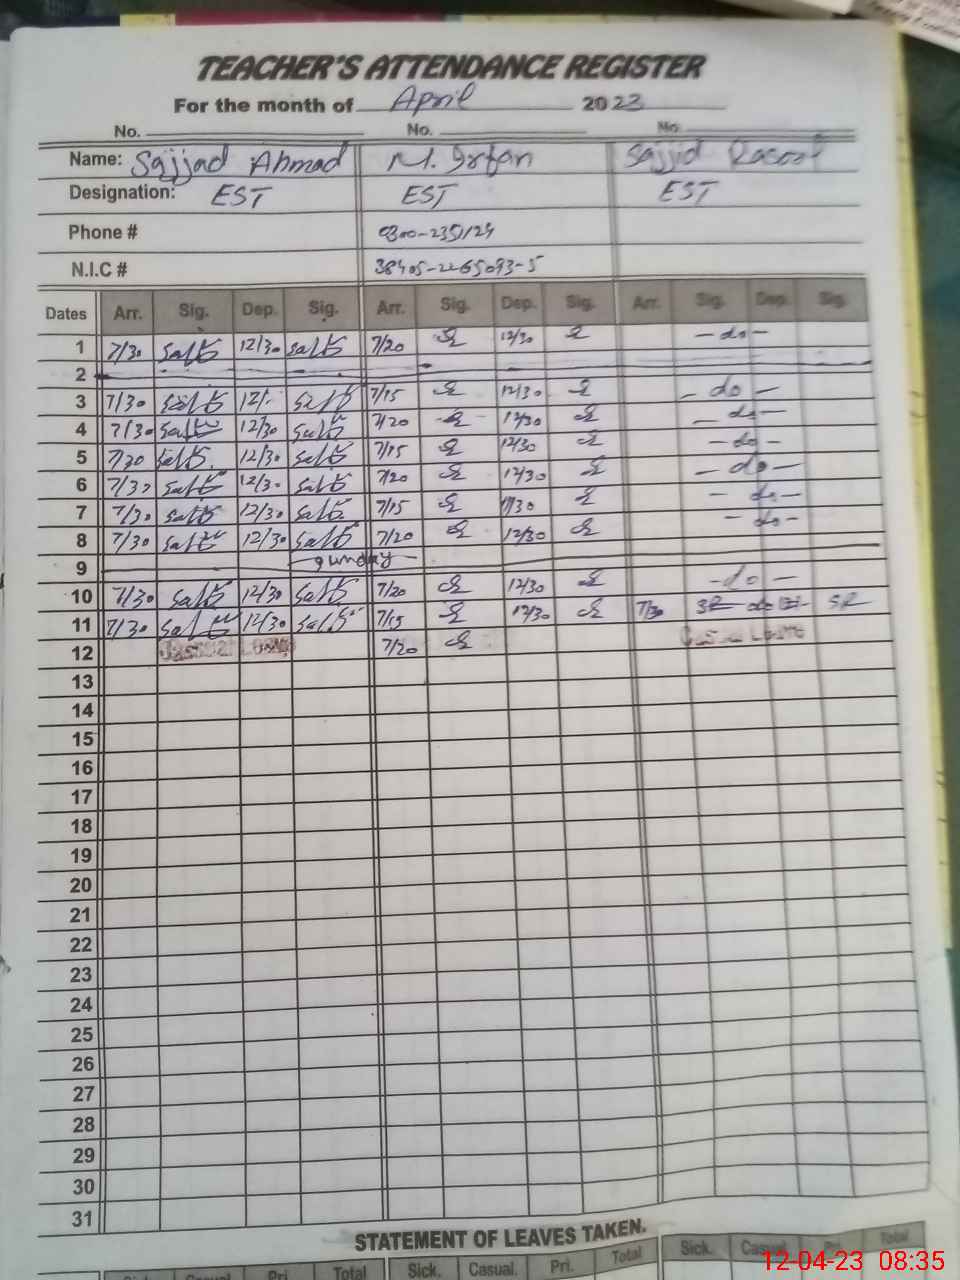 TEACHER'S ATTENDANCE REGISTER
For the month of April 2023
No. No. No.
Name: Sajjad Ahmad M. Irfan Sajjid Rasool
Designation: EST EST EST
Phone #
N.I.C # 38405-2265093-5
Dates Arr. Sig. Dep. Sig. Arr. Sig. Dep. Sig. Arr. Sig. Dep. Sig.
1 7/30 12/30 7/20 12/30 - do -
2
3 7/30 12/- 7/15 12/30 - do -
4 7/30 12/30 7/20 12/30 - do -
5 7/30 12/30 7/15 12/30 - do -
6 7/30 12/30 7/20 12/30 - do -
7 7/30 12/30 7/15 - do -
8 7/30 12/30 7/20 12/30 - do -
9 Sunday
10 7/30 12/30 7/20 12/30 - do -
11 7/30 12/30 7/15 12/30 7/30 SR do SR
12 Casual Leave 7/20 Casual Leave
13
14
15
16
17
18
19
20
21
22
23
24
25
26
27
28
29
30
31
STATEMENT OF LEAVES TAKEN.
Sick. Casual. Pri. Total Sick. Casual. Pri. Total Sick. Casual. Pri. Total
12-04-23 08:35